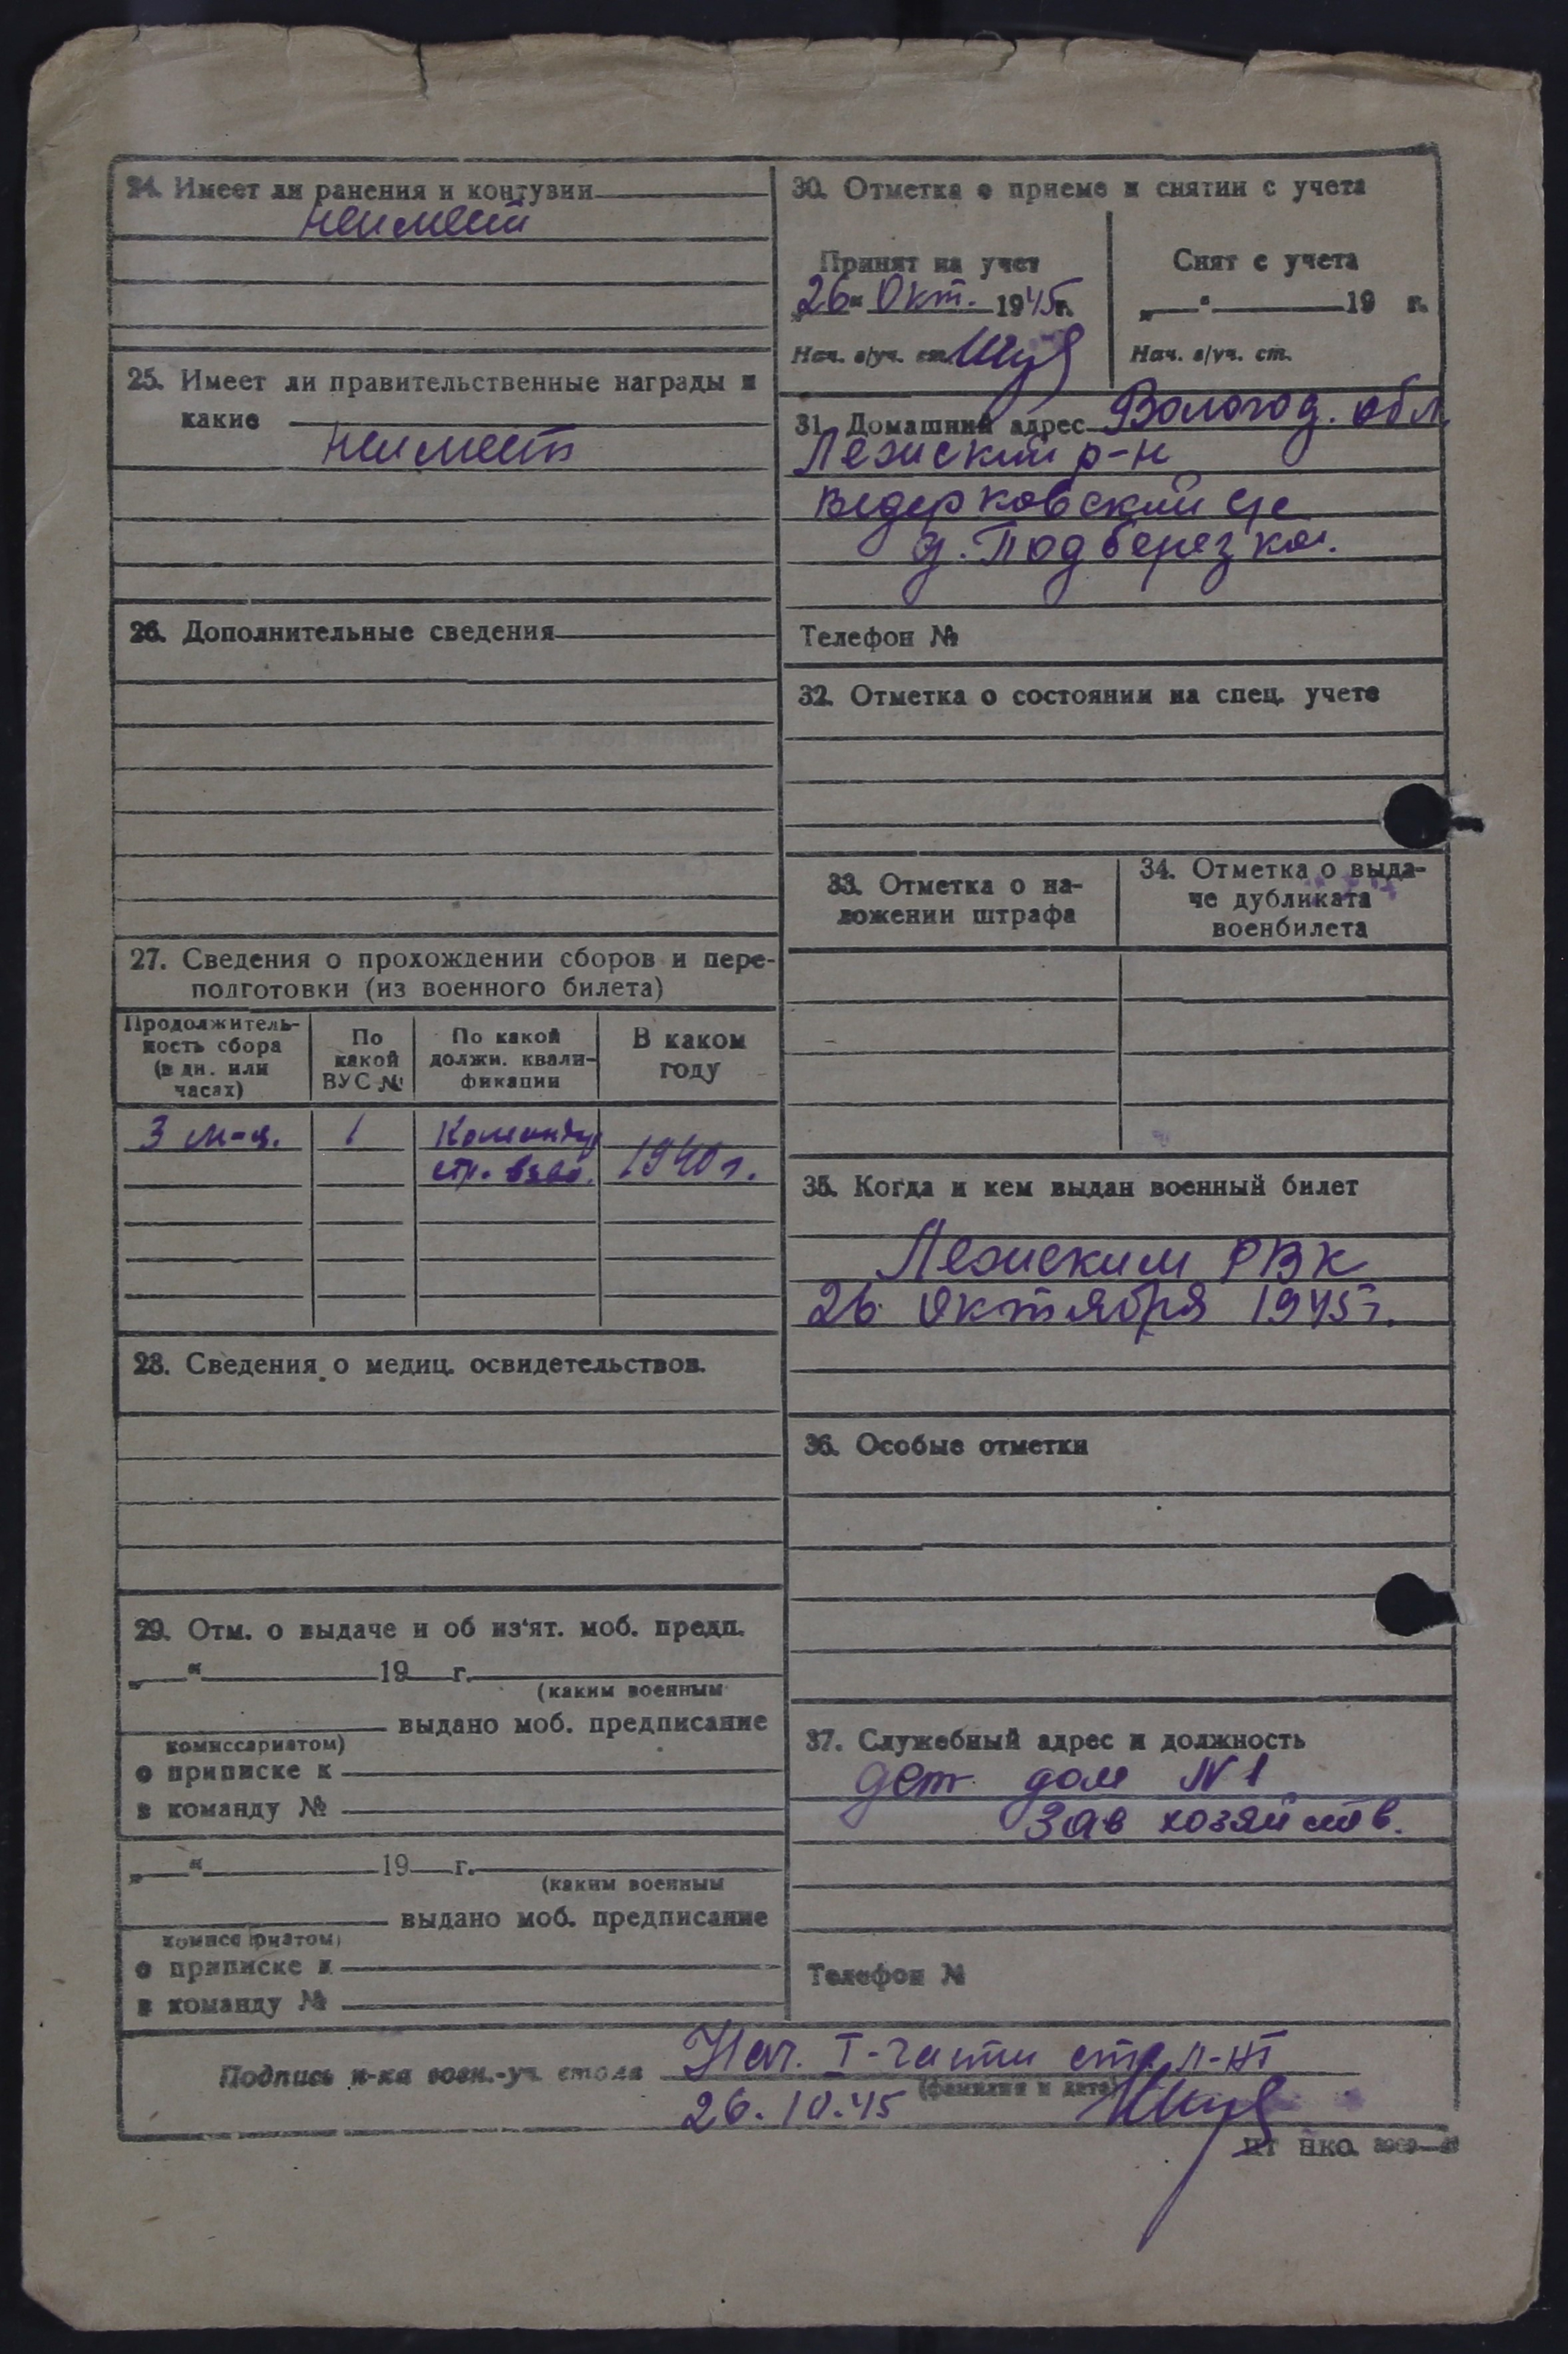 24. Имеет ли ранения и контузии
неимеет
25. Имеет ли правительственные награды и
какие
неимеет
26. Дополнительные сведения
27. Сведения о прохождении сборов и пере-
подготовки (из военного билета)
Продолжитель-
ность сбора
(в дн. или
часах)
По
какой
ВУС №
По какой
должн. квали-
фикации
В каком
году
3 м-ц. 1 Командир
стр. взво. 1940 г.
28. Сведения о медиц. освидетельствов.
29. Отм. о выдаче и об из'ят. моб. предп.
„ “ 19 г.
(каким военным
выдано моб. предписание
комиссариатом)
о приписке к
в команду №
„ “ 19 г.
(каким военным
выдано моб. предписание
комиссариатом)
о приписке к
в команду №
30. Отметка о приеме и снятии с учета
Принят на учет
„26“ Окт. 1945 г.
Нач. в/уч. ст.
Снят с учета
„ “ 19 г.
Нач. в/уч. ст.
31. Домашний адрес Вологод. обл.
Лежский р-н
Ведерковский с/с
д. Подберезка.
Телефон №
32. Отметка о состоянии на спец. учете
33. Отметка о на-
ложении штрафа
34. Отметка о выда-
че дубликата
военбилета
35. Когда и кем выдан военный билет
Лежским РВК
26 октября 1945 г.
36. Особые отметки
37. Служебный адрес и должность
дет. дом № 1
Зав хозяйств.
Телефон №
Подпись н-ка воен.-уч. стола Нач. I-части ст. л-нт
(фамилия и дата)
26.10.45
ЦТ НКО.